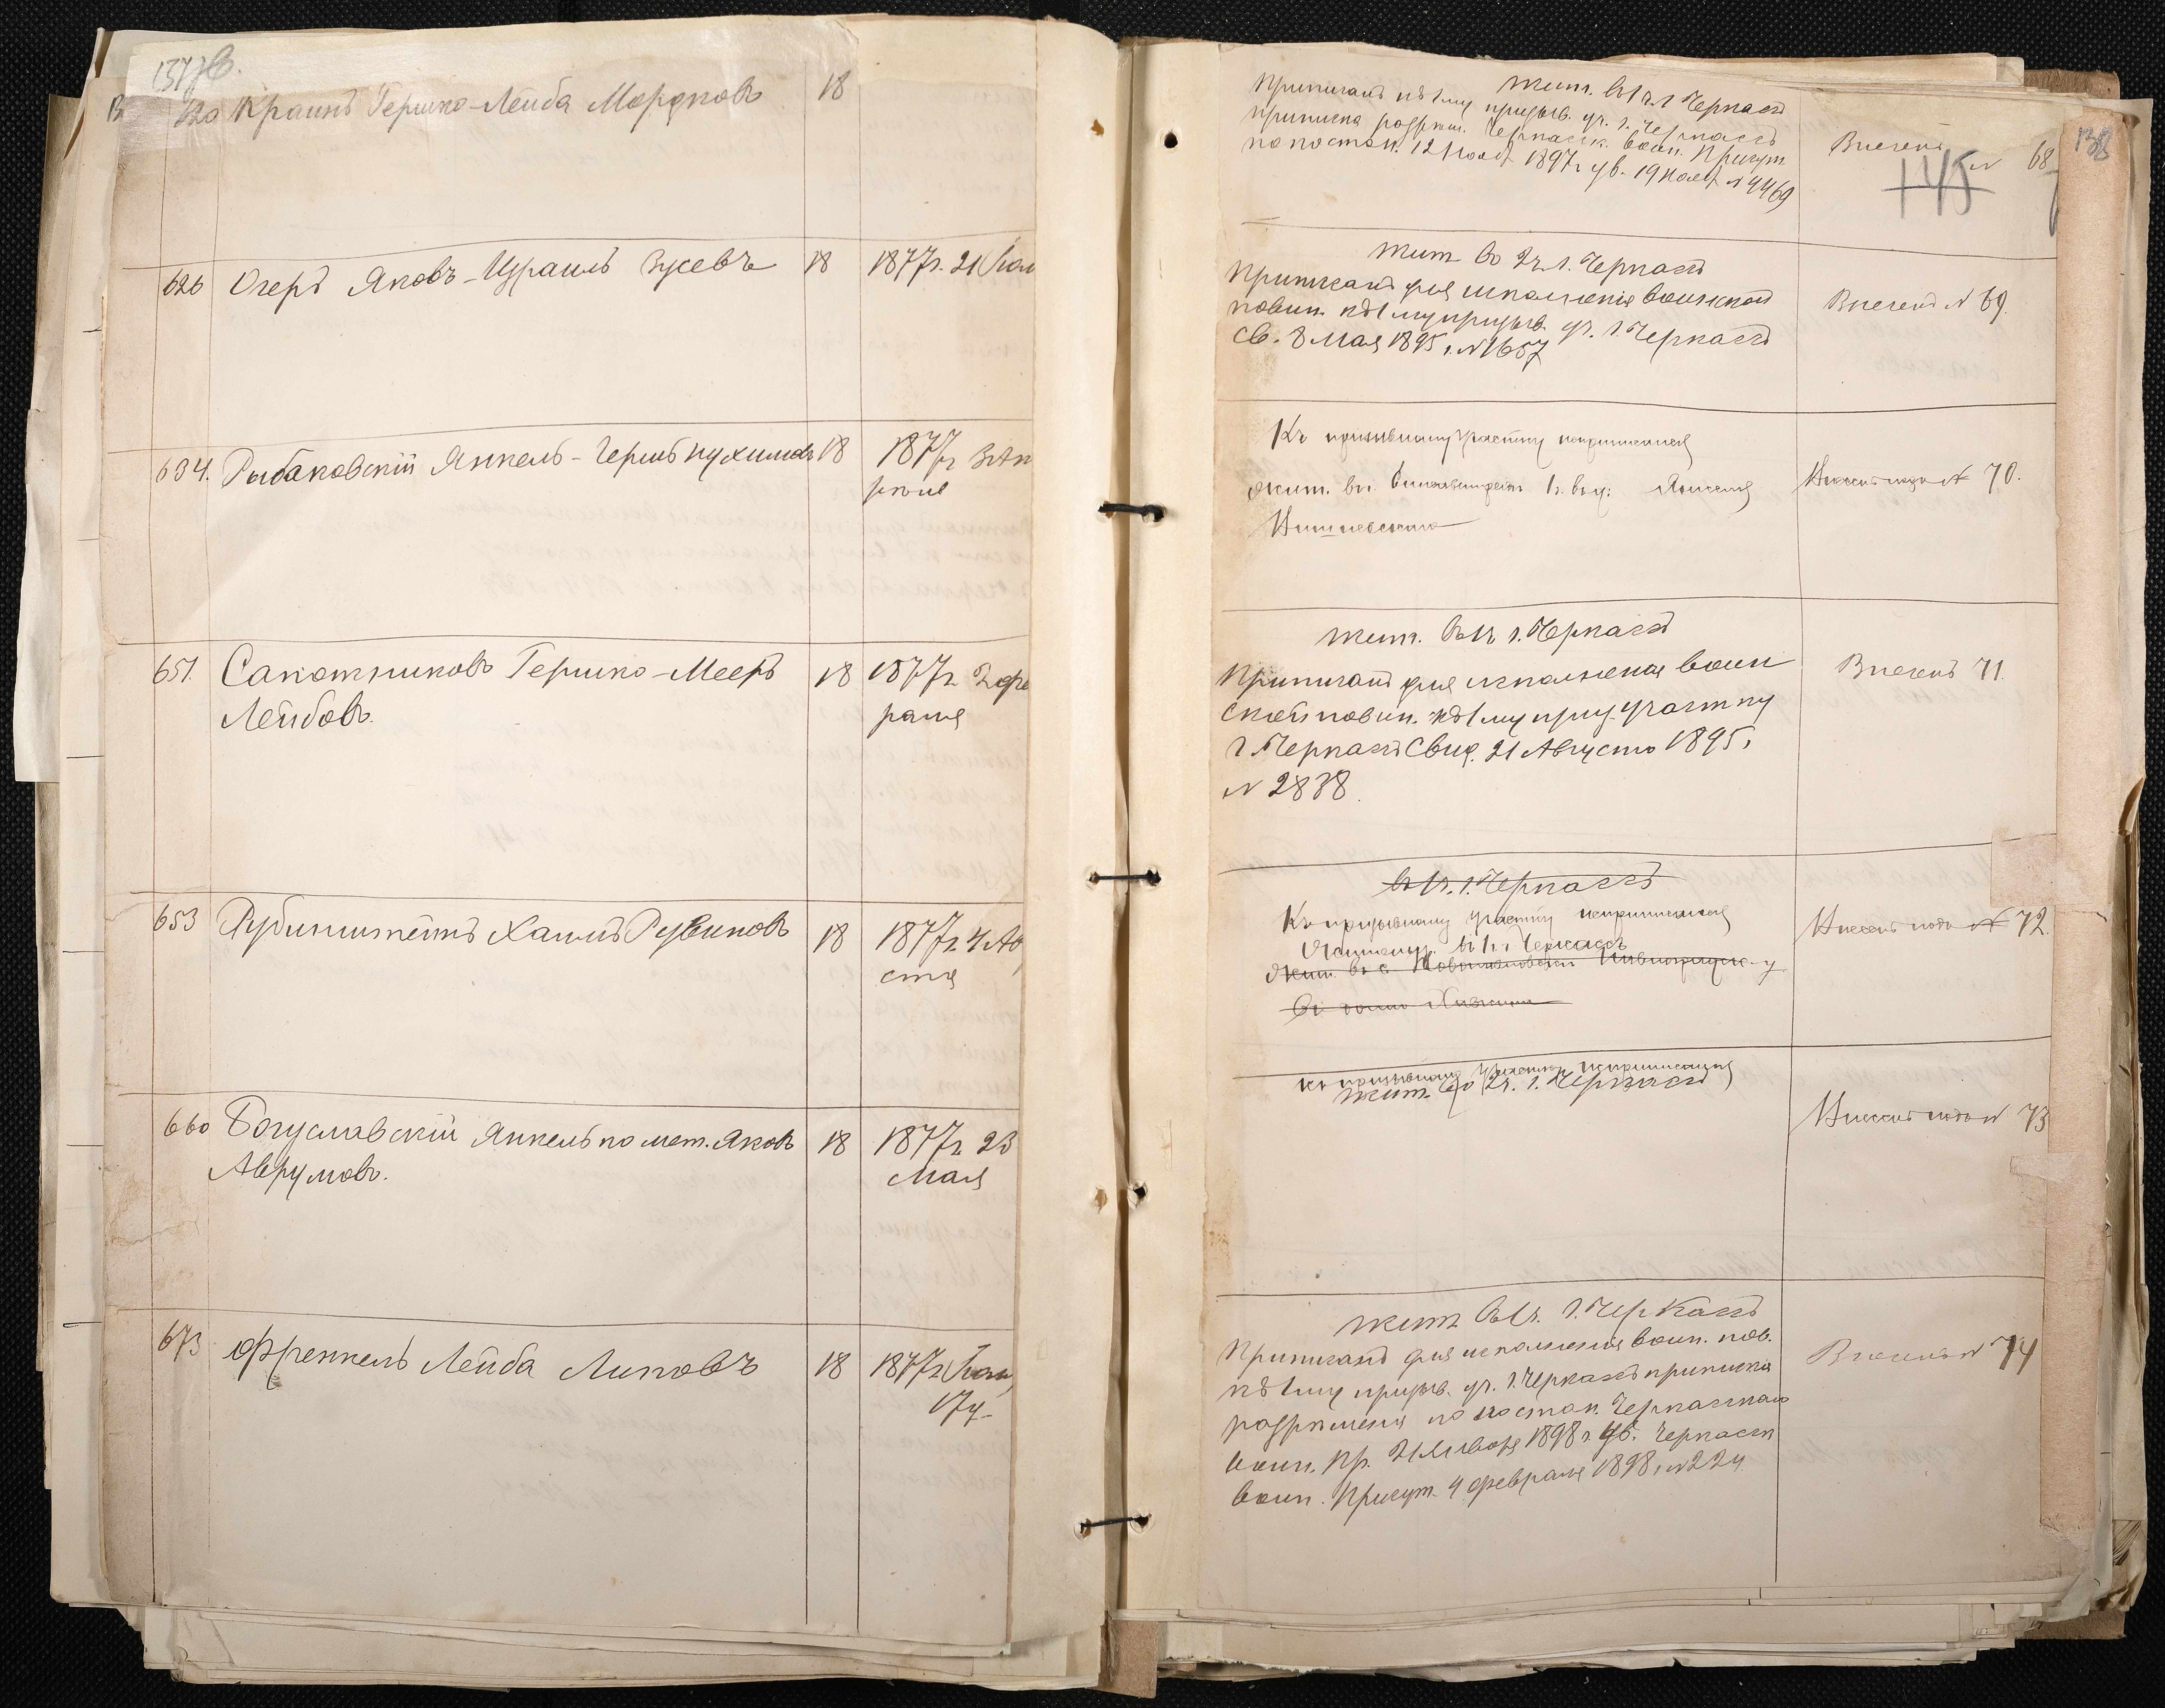 137об.
620 Краинъ Гершко-Лейба Мордковъ 18
626 Очеръ Яковъ-Израиль Зусевъ 18 1877г. 21
634. Рыбаковскій Янкель-Гершъ Нухимовъ 18 1877г
651. Сапотниковъ Гершко-Мееръ 18 1877г. 2 фе
Лейбовъ. раля
653 Рубинштейнъ Хаимъ Рувиновъ 18 1877г. 4 Ав
ста
660 Богуславскій Янкель по мет. Яковъ 18 1877г. 23
Аврумовъ. Мая
673 Френкель Лейба Липовъ 18 1877г.
17
138
жит. въ 1 ч. г. Черкассъ
Приписанъ къ 1му призыв. уч. г. Черкассъ
приписка разрѣш. Черкасск. воин. Присут.
по постан. 12 Нояб 1897г ув. 19 Нояб № 4469
Внесенъ № 68
145
жит. во 2 ч. г. Черкассъ
Приписанъ для исполненія воинской
повин. къ 1му призыв. уч. г. Черкассъ
св. 8 Мая 1895 г. № 1657
Внесенъ № 69.
Къ призывному участку неприписался
жит. въ
Внесенъ подъ № 70.
жит. въ 1ч г. Черкассъ
Приписанъ для исполненія воин
ской повин. къ 1му приз. участку
г. Черкассъ Свид. 21 Августа 1895г
№ 2838.
Внесенъ 71.
въ 1ч. г. Черкассъ
Къ призывному участку неприписался
въ 1 ч. г. Черкассъ
Внесенъ подъ № 72.
Къ призывному участку неприписался
жит. во 2 ч. г. Черкассъ
Внесенъ подъ № 73
жит. въ 1ч. г. Черкассъ
Приписанъ для исполненія воин. пов.
къ 1му призыв. уч. г. Черкассъ приписка
разрѣшена по постан. Черкасскаго
воин. Пр. 21 Января 1898 г. ув. Черкасск
воин. Присут. 4 февраля 1898г № 224
Внесенъ № 74